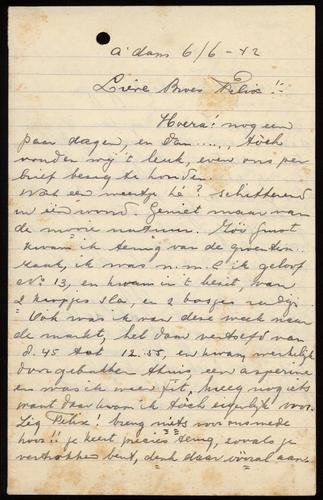 A'dam 6/6-42
Lieve Broer Felix!-
Hoera! nog een
paar dagen, en dan....., toch
vonden wij 't leuk, even ons per
brief bezig te houden.
Wat een weertje hè? schitterend
in één woord. Geniet maar van
de mooie natuur. Zóó juist
kwam ik terug van de groenten
zaak, ik was n.m.l. ik geloof
No 13, en kwam in 't bezit, van
2 kropjes sla, en 2 bosjes radijs.
Ook was ik van deze week naar
de markt, het daar vertoefd van
8.45 tot 12.55, en kwam werkelijk
doorgebakken thuis, een asperine
en was ik weer fit, kreeg nog iets
want daar kwam ik toch eigenlijk voor.
Zeg Felix! breng niets voor ons mede
hoor!! je keert precies terug, zooals je
vertrokken bent, denk daar vooral aan.